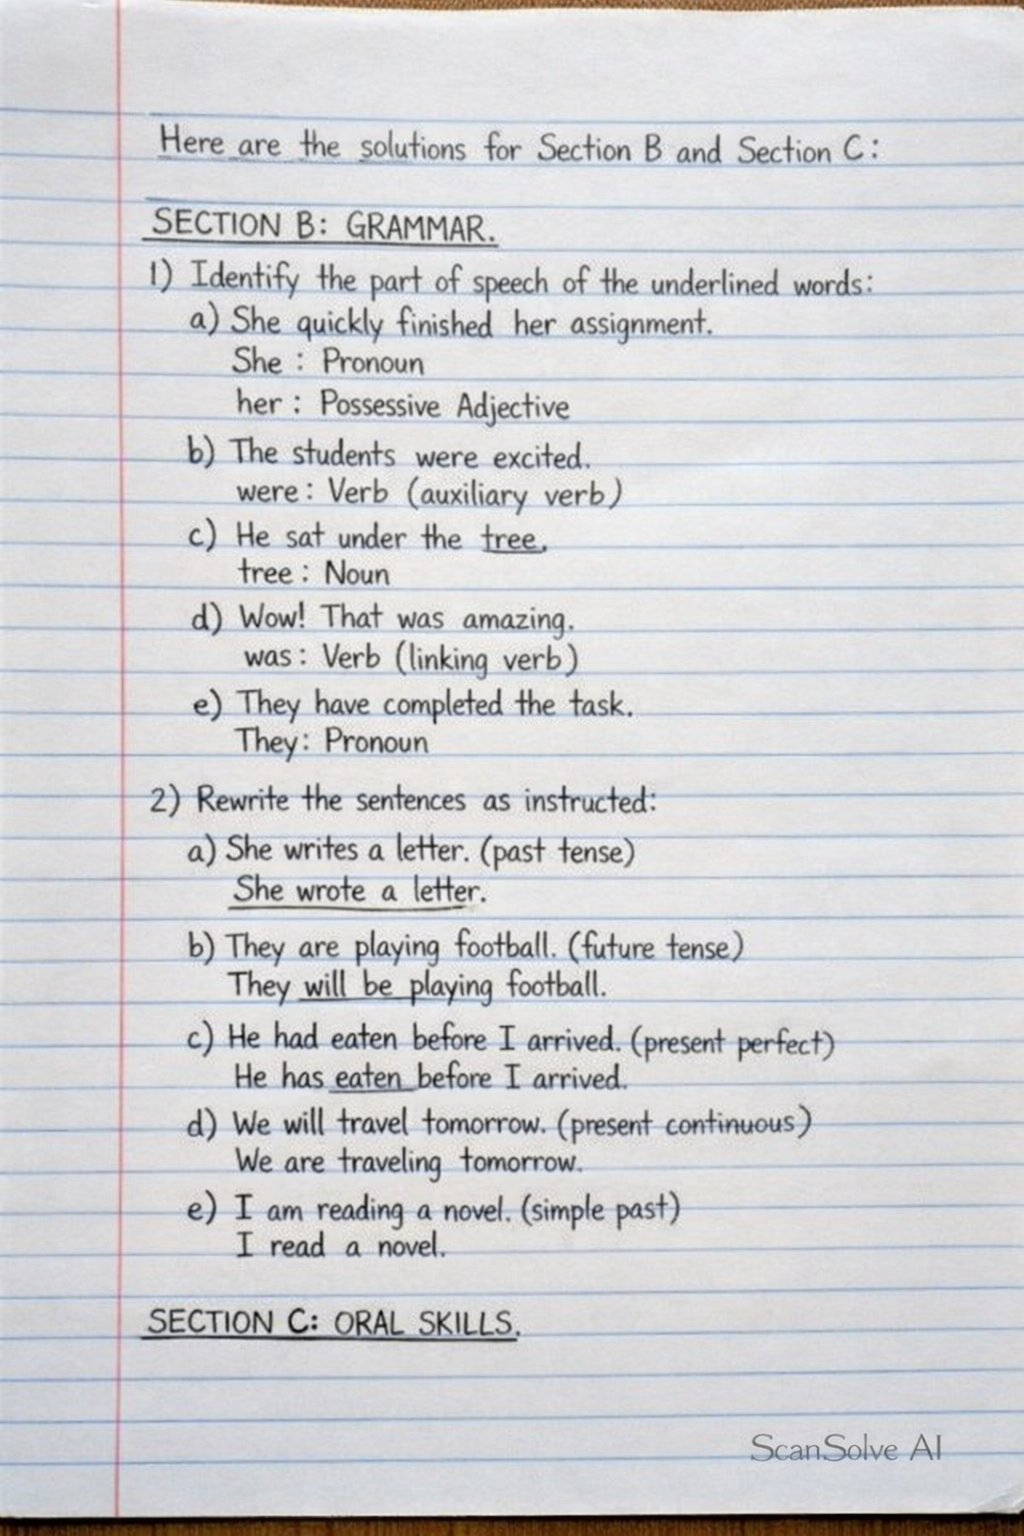 Here are the solutions for Section B and Section C:
SECTION B: GRAMMAR.
1) Identify the part of speech of the underlined words:
a) She quickly finished her assignment.
She : Pronoun
her : Possessive Adjective
b) The students were excited.
were : Verb (auxiliary verb)
c) He sat under the tree.
tree : Noun
d) Wow! That was amazing.
was : Verb (linking verb)
e) They have completed the task.
They: Pronoun
2) Rewrite the sentences as instructed:
a) She writes a letter. (past tense)
She wrote a letter.
b) They are playing football. (future tense)
They will be playing football.
c) He had eaten before I arrived. (present perfect)
He has eaten before I arrived.
d) We will travel tomorrow. (present continuous)
We are traveling tomorrow.
e) I am reading a novel. (simple past)
I read a novel.
SECTION C: ORAL SKILLS.
ScanSolve AI